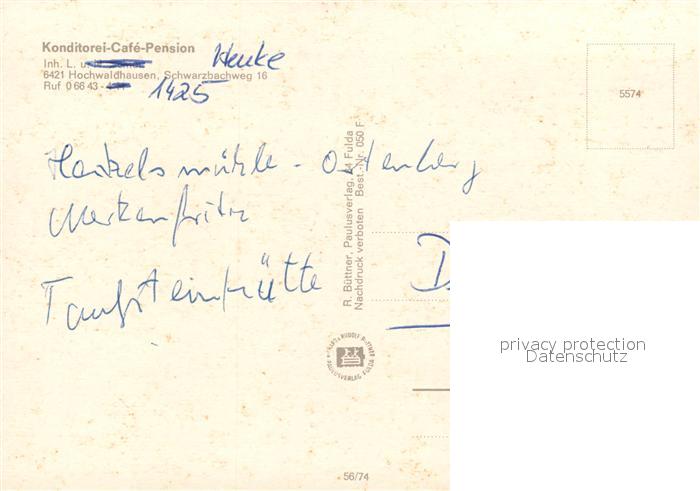 Konditorei-Café-Pension
Inh. L. u. Henke
6421 Hochwaldhausen, Schwarzbachweg 16
Ruf 0 66 43 - 1425
5574
Hartelsmühle - Ortenberg
Merkenfritz
Taufsteinhütte
R. Büttner, Paulusverlag, 64 Fulda
Nachdruck verboten Best.-Nr. 050 F
D
PAULUSVERLAG FULDA
56/74
privacy protection
Datenschutz